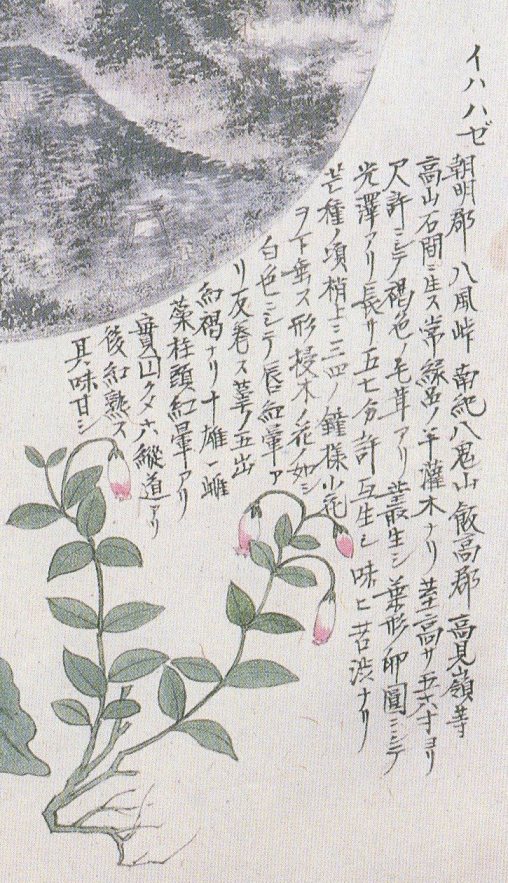 イハハゼ 朝明郡 八風峠 南紀八鬼山 飯高郡 高見嶺等
高山石間ニ生ス常緑ノ半灌木ナリ 莖高サ五六寸ヨリ
尺許ニシテ褐色ノ毛茸アリ 叢生シ 葉形卵圓ニシテ
光澤アリ長サ五七分許互生シ 味ヒ苦渋ナリ
芒種ノ頃梢上ニ三四ノ鐘様小花
ヲ下垂ス形梫木ノ花ノ如シ
白色ニシテ唇紅暈ア
リ反巻ス萼ノ五出
紅褐ナリ十雄一雌
藥柱頭紅暈アリ
實凹クメ六縦道アリ
後紅熟ス
其味甘シ